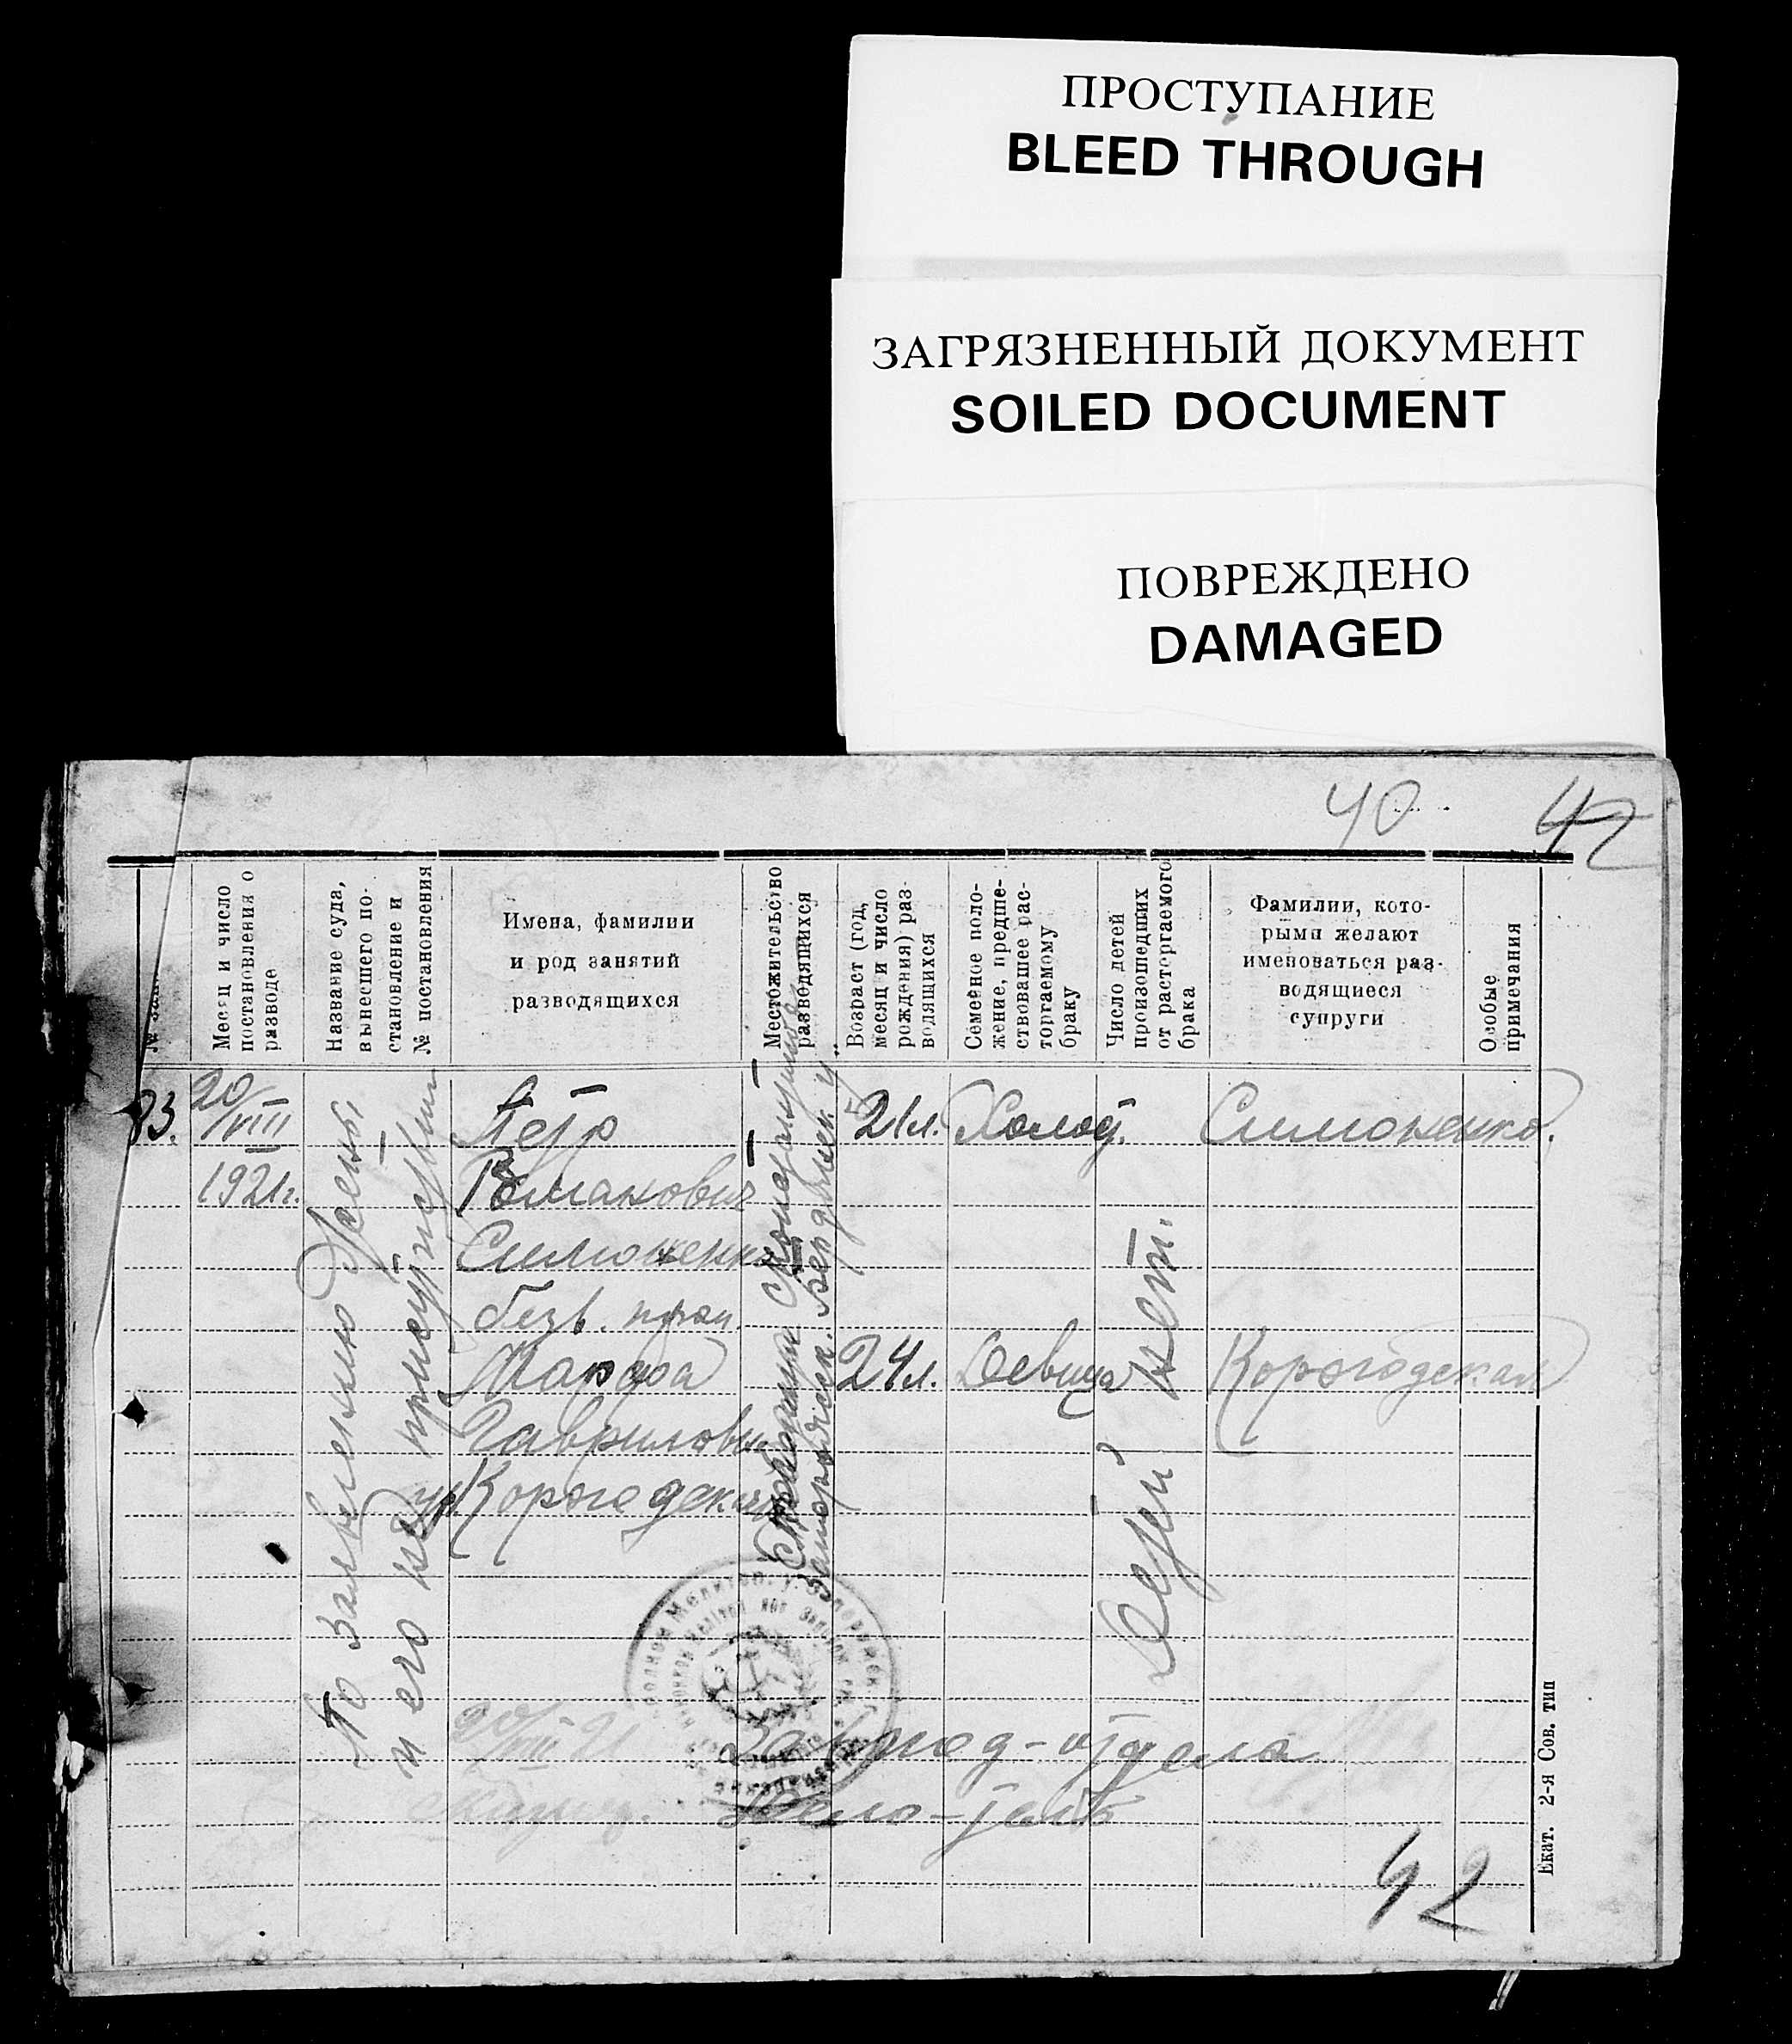 ПРОСТУПАНИЕ
BLEED THROUGH
ЗАГРЯЗНЕННЫЙ ДОКУМЕНТ
SOILED DOCUMENT
ПОВРЕЖДЕНО
DAMAGED
40
42
Месяц и число
постановления о
разводе
Название суда,
вынесшего по-
становление и
№ постановления
Имена, фамилии
и род занятий
разводящихся
Местожительство
разводящихся
Возраст (год,
месяц и число
рождения) раз-
водящихся
Семейное поло-
жение, предше-
ствовавшее рас-
торгаемому
браку
Число детей
произошедших
от расторгаемого
брака
Фамилии, кото-
рыми желают
именоваться раз-
водящиеся
супруги
Особые
примечания
83.
20/VIII
1921г.
По заявлению Жены
и его не присутствии
Петр
Романович
Симоненко
безв.
Марфа
Гавриловн.
ур. Корогодская
Запорожск. Бердянск. у.
21л.
Холост.
24л.
Девица
Детей нет.
Симоненко.
Корогодская
20/VIII 21
Зав. под-отдела
Дело-
42
Екат. 2-я Сов. тип